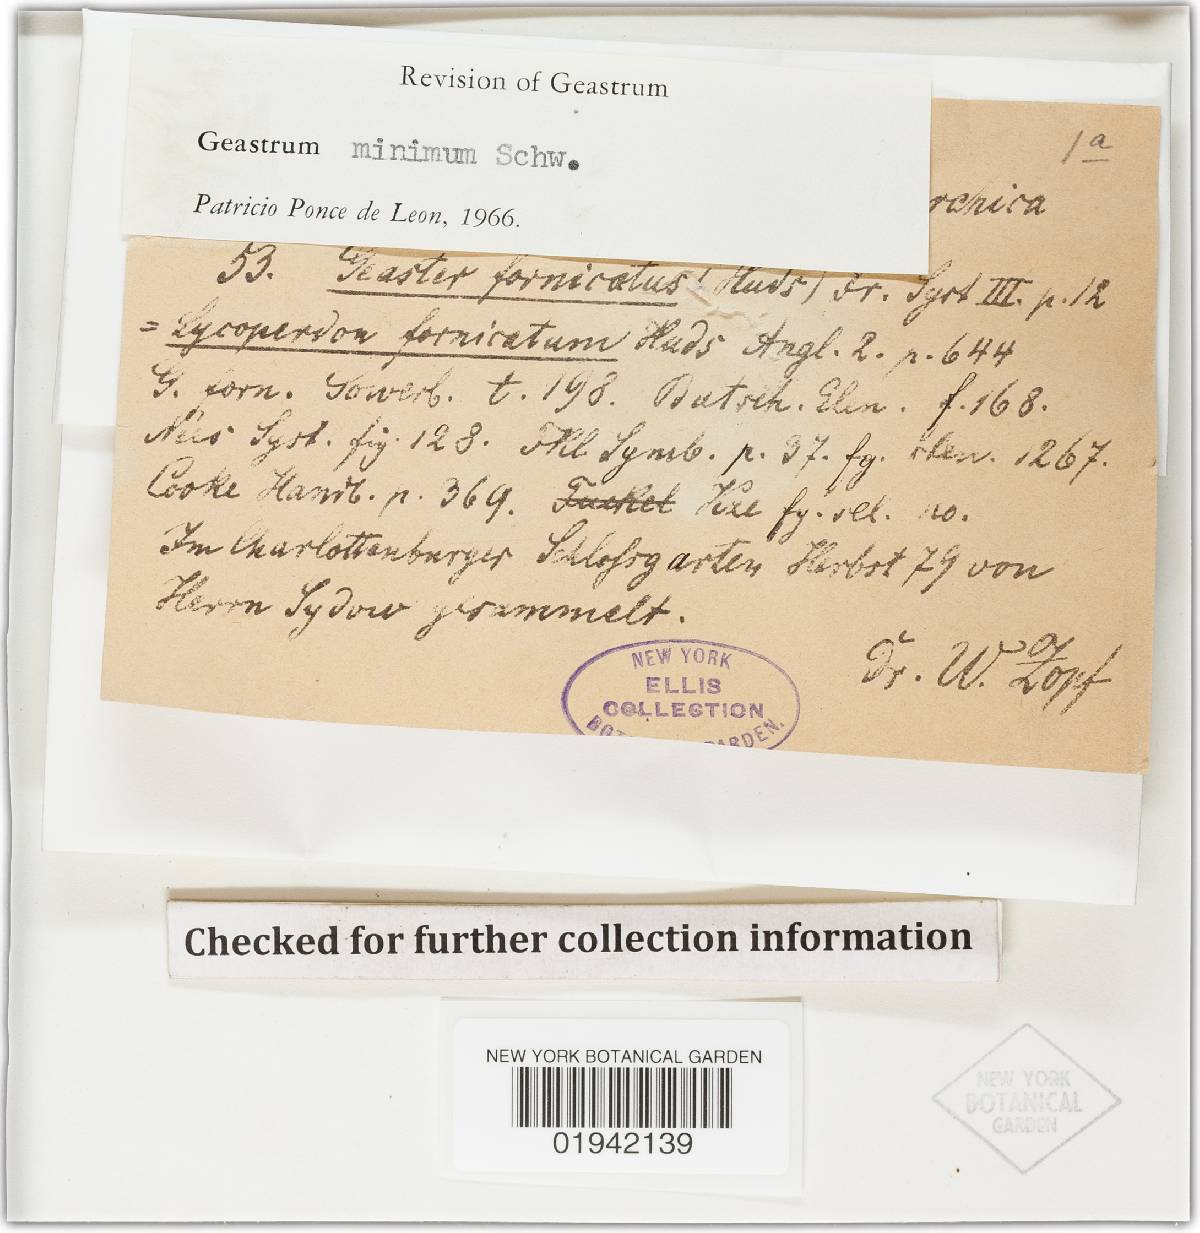 Revision of Geastrum
Geastrum minimum Schw.
Patricio Ponce de Leon, 1966.
1 a
rchica
53. Geaster fornicatus (Huds) Fr. Syst III. p. 12
= Lycoperdon fornicatum Huds Angl. 2. p. 644
G. forn. Sowerb. t. 198. Batsch. Elen. f. 168.
Nees Syst. fig. 128. Fkl Symb. p. 37. fg. 1267.
Cooke Handb. p. 369. Fuckel Kze fg. sel. no.
Im Charlottenburger Schlossgarten Herbst 79 von
Herrn Sydow gesammelt.
Dr. W. Zopf
NEW YORK
ELLIS
COLLECTION
BOT GARDEN.
Checked for further collection information
NEW YORK BOTANICAL GARDEN
01942139
NEW YORK
BOTANICAL
GARDEN